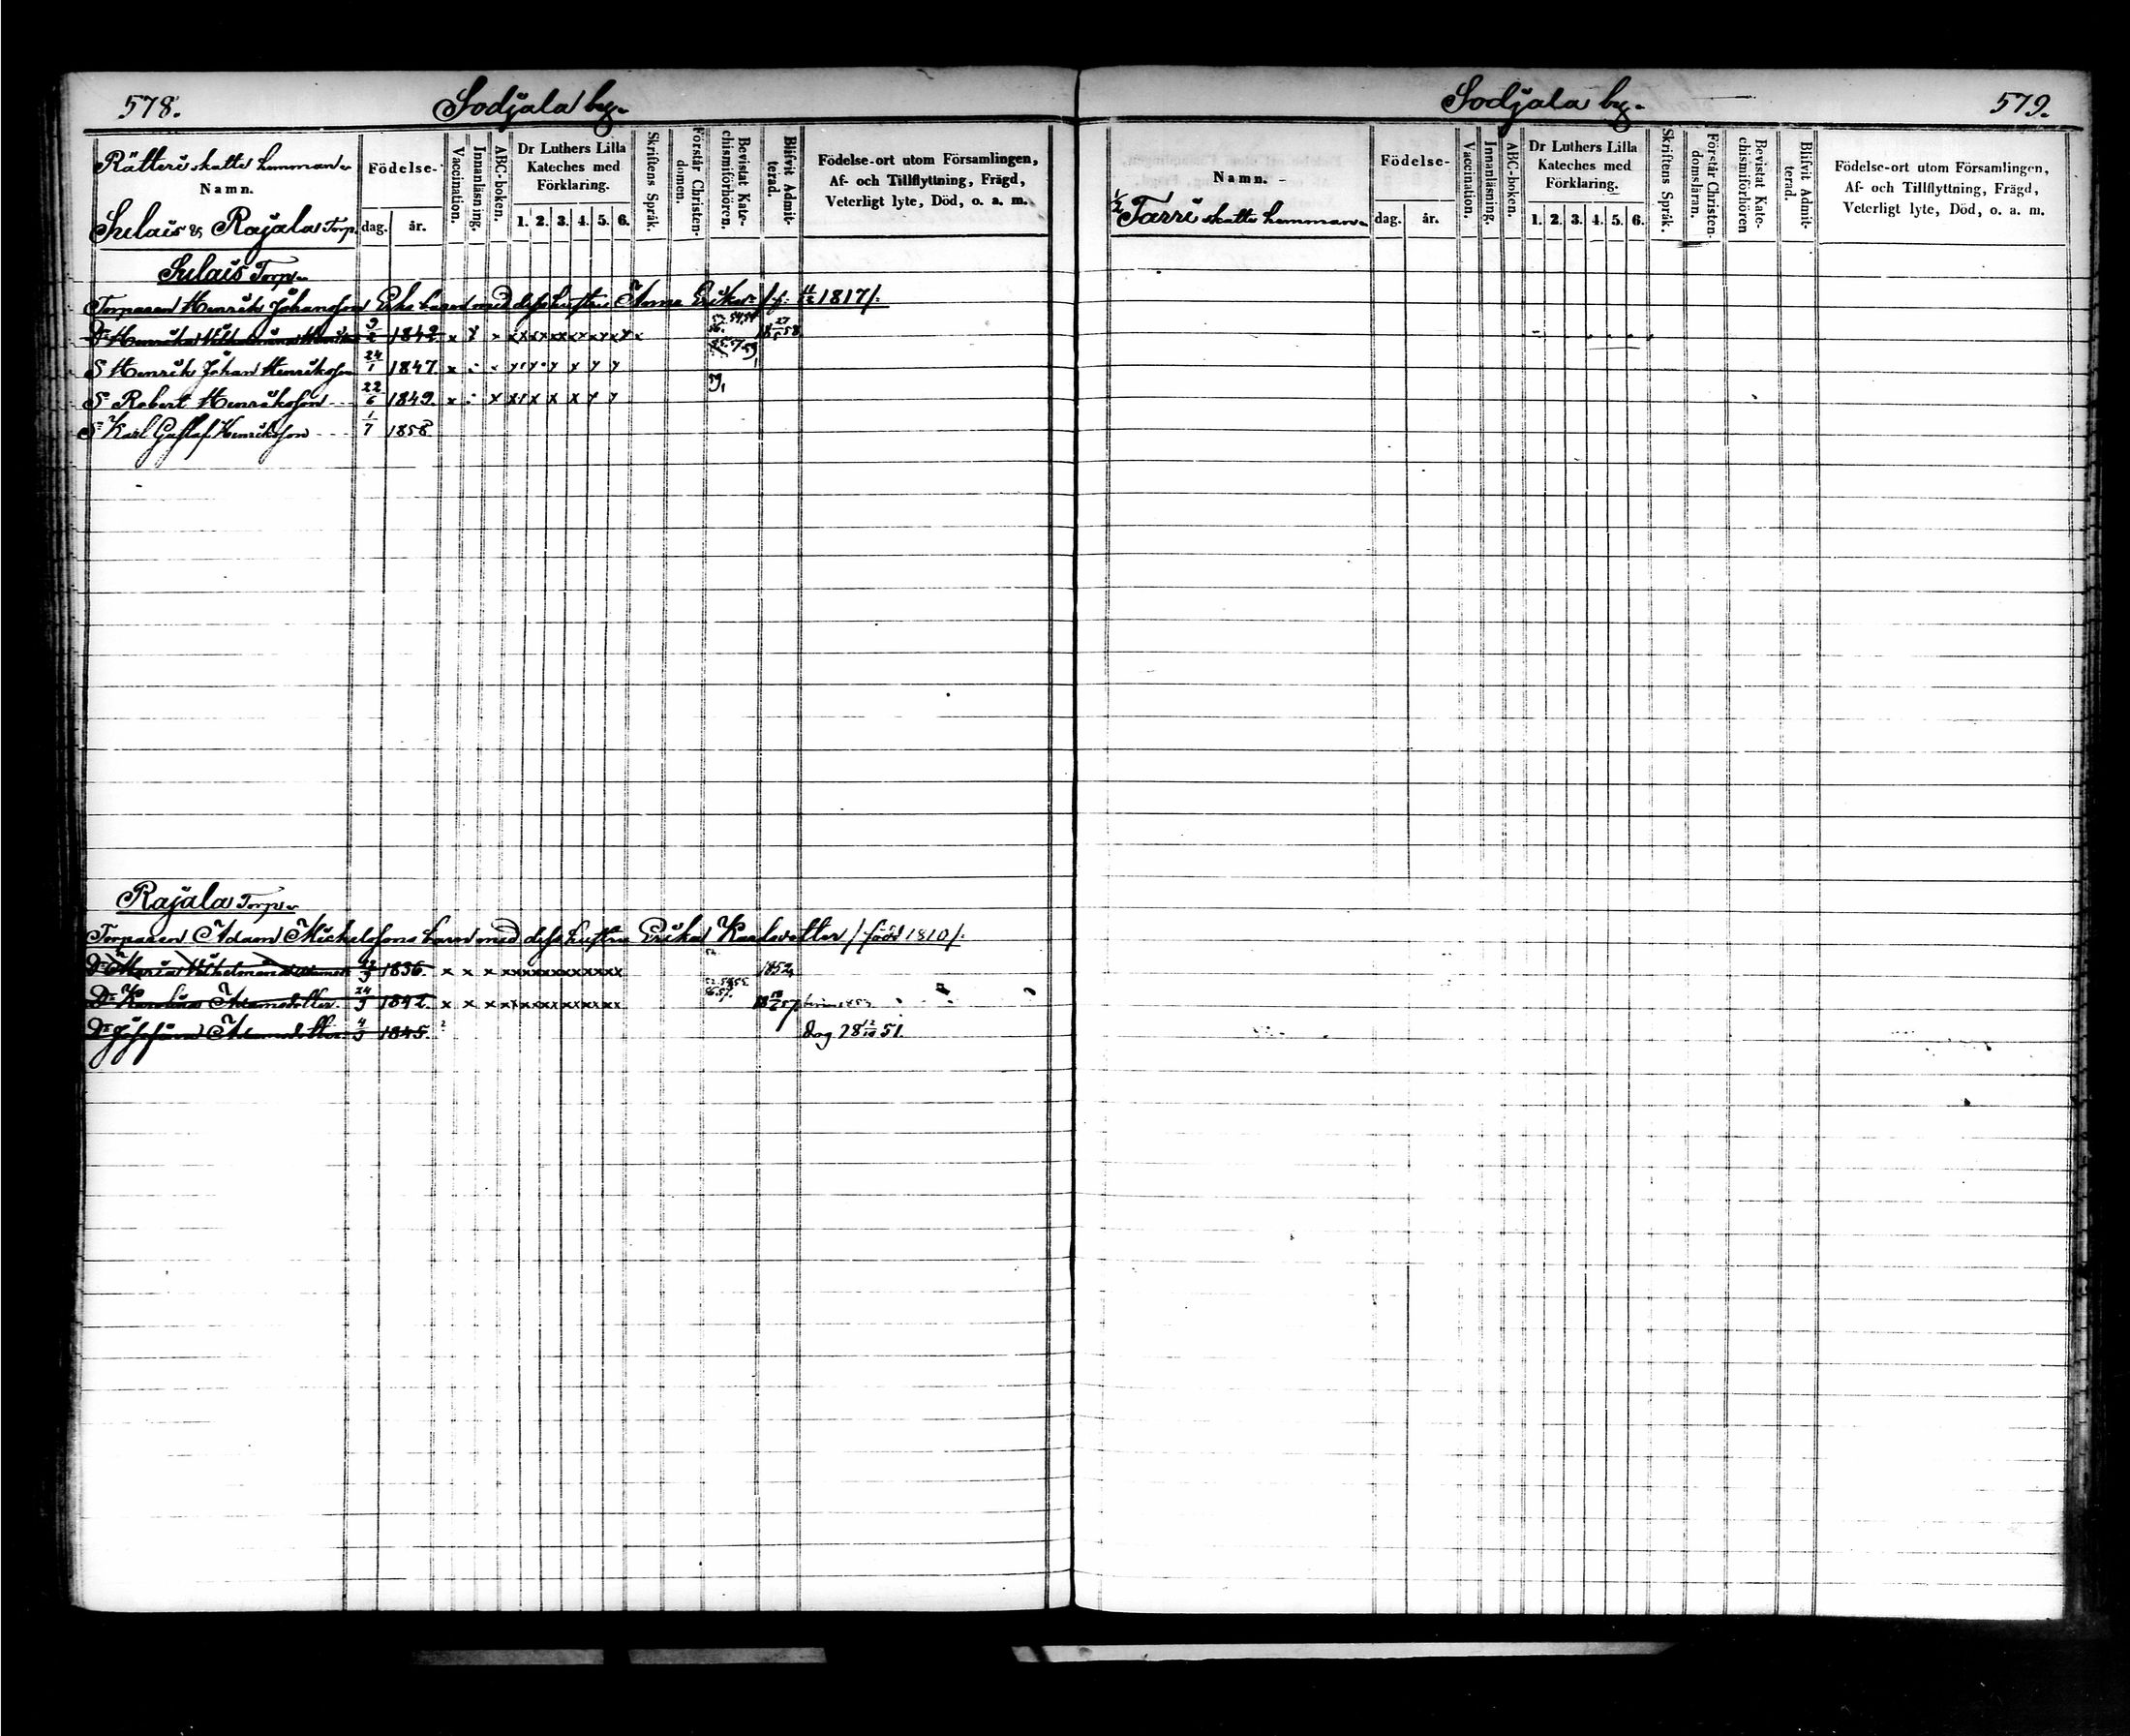 578. Sodjala by.
Rätteri skatte hemman.
Namn.
Födelse-
dag. år.
Vaccination.
Innanläsning.
ABC-boken.
Dr Luthers Lilla Kateches med Förklaring.
1. 2. 3. 4. 5. 6.
Skriftens Språk.
Förstår Christendomen.
Bevistat Katechismiförhören.
Blifvit Admitterad.
Födelse-ort utom Församlingen,
Af- och Tillflyttning, Frägd,
Veterligt lyte, Död, o. a. m.
Sulais & Rajala Torp.
Sulais Torp.
Torparen Henrik Johansson barn med dess hustru Anna 1817/.
D: Henrika Wilhelmina 9/2 1842 x x x x x x x x x 58
S Henrik Johan Henriksson 24/1 1847 x
S: Robert Henriksson 22/6 1849 x
S: Karl Gustaf Henriksson 1/7 1858
Rajala Torp.
Torparen Adam Mickelssons barn med dess hustru Erika Karlsdotter / född 1810/.
D: Maria Wilhelmina 1836. x x x x x x x x x x x x x x 1852
D: Karolina Adamsdotter 24/3 1842 x x x x x x x x x x x x x x
D: Josefina Adamsdotter 4/3 1845. dog 28 51.
Sodjala by. 579.
Namn.
1/2 Tarri skatte hemman.
Födelse-
dag. år.
Vaccination.
Innanläsning.
ABC-boken.
Dr Luthers Lilla Kateches med Förklaring.
1. 2. 3. 4. 5. 6.
Skriftens Språk.
Förstår Christendomsläran.
Bevistat Katechismiförhören
Blifvit Admitterad.
Födelse-ort utom Församlingen,
Af- och Tillflyttning, Frägd,
Veterligt lyte, Död, o. a. m.